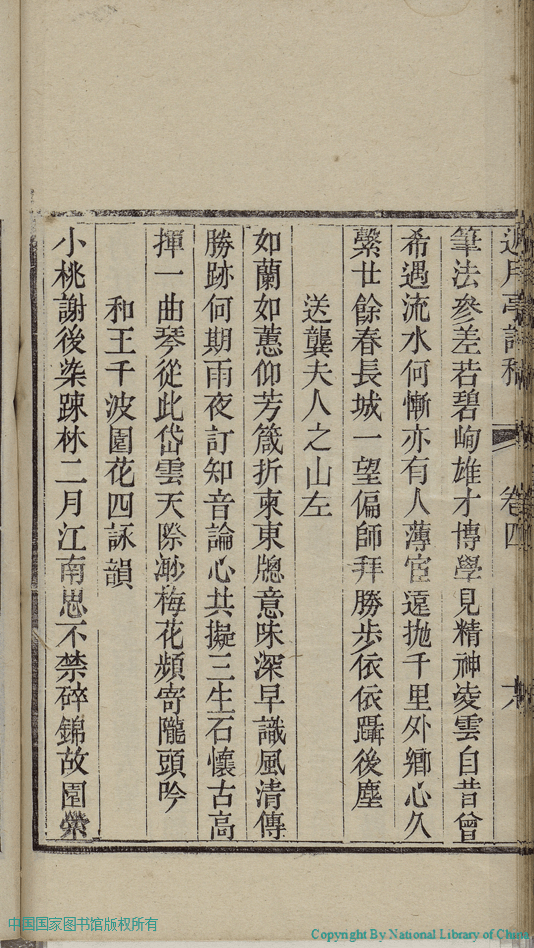 過月亭詩稿 卷四
筆法參差若碧峋雄才博學見精神凌雲自昔曾
希遇流水何慚亦有人薄宦遠拋千里外鄉心久
縈廿餘春長城一望偏師拜勝步依依躡後塵
送龔夫人之山左
如蘭如蕙仰芳箴折柬東牕意味深早識風清傳
勝跡何期雨夜訂知音論心共擬三生石懷古高
揮一曲琴從此岱雲天際渺梅花頻寄隴頭吟
和王千波園花四詠韻
小桃謝後柒踈林二月江南思不禁碎錦故園縈
中国国家图书馆版权所有
Copyright By National Library of China